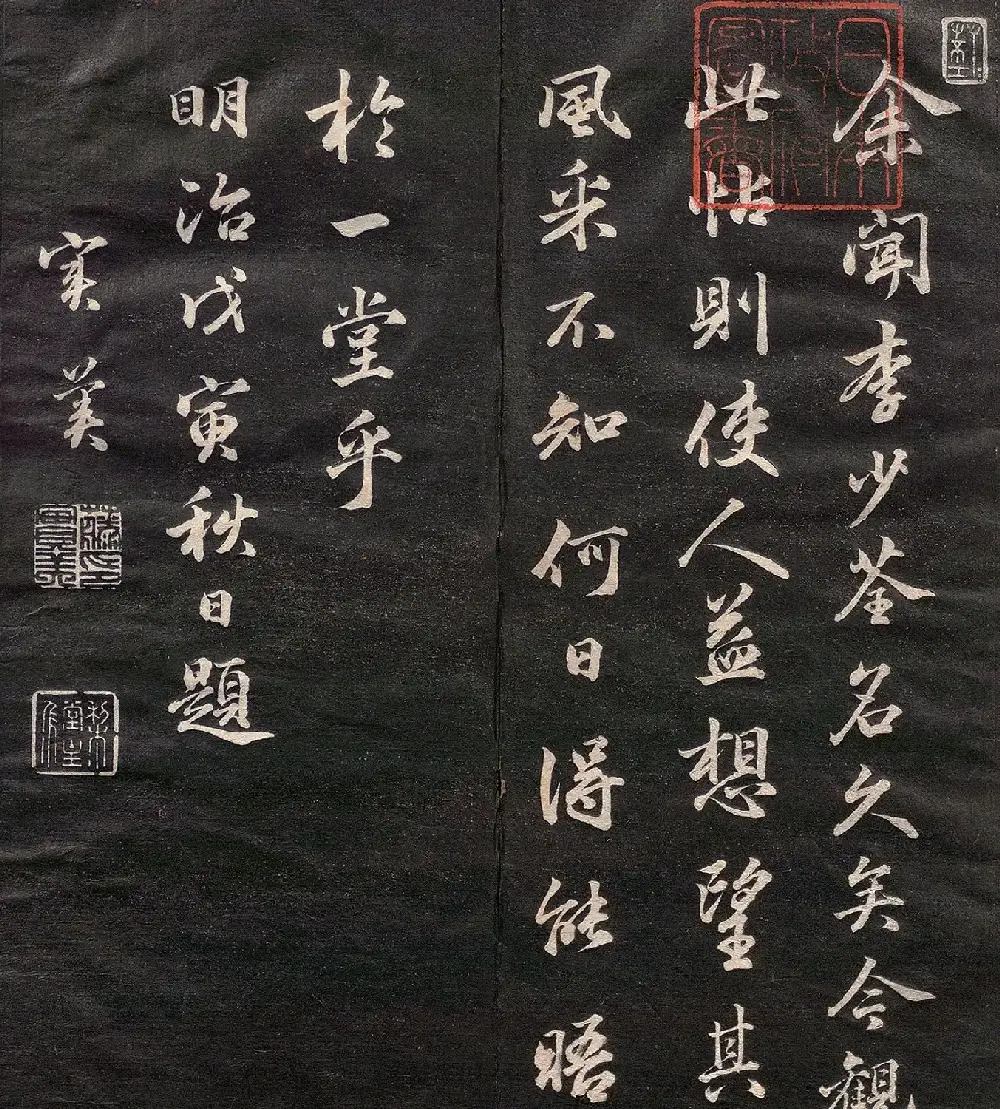 余聞李少荃名久矣今觀
此帖則使人益想望其
風采不知何日得能晤
於一堂乎
明治戊寅秋日題
実美
藤印實美